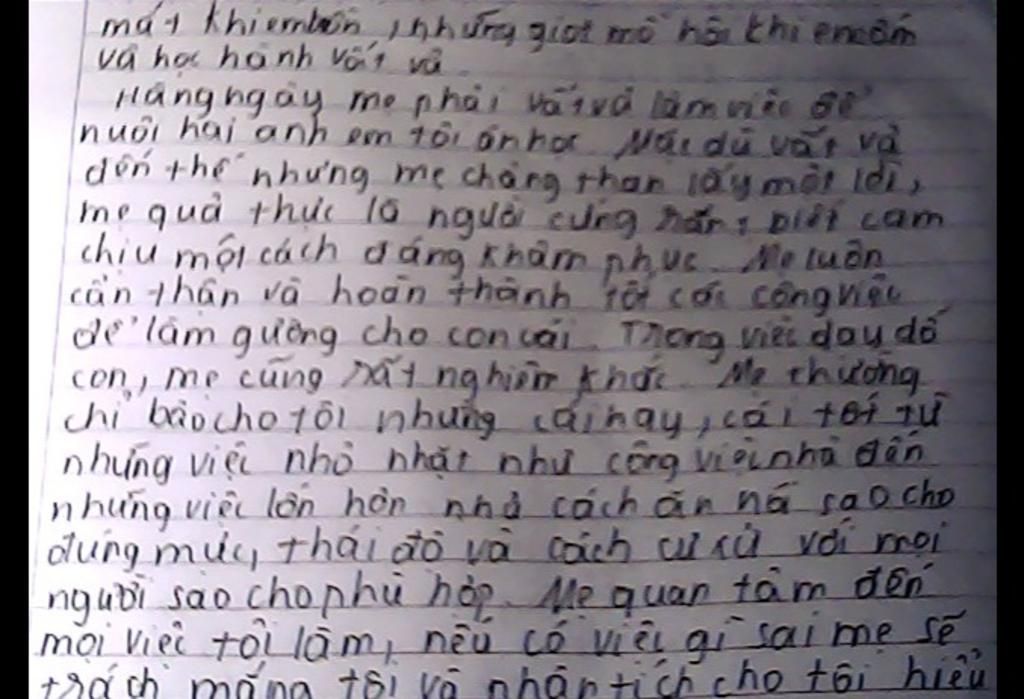 mắt khi em buồn, những giọt mồ hôi khi em ốm
và học hành vất vả.
Hàng ngày mẹ phải vất vả làm việc để
nuôi hai anh em tôi ăn học. Mặc dù vất vả
đến thế nhưng mẹ chẳng than lấy một lời,
mẹ quả thực là người cứng rắn, biết cam
chịu một cách đáng khâm phục. Mẹ luôn
cẩn thận và hoàn thành tốt các công việc
để làm gương cho con cái. Trong việc dạy dỗ
con, mẹ cũng rất nghiêm khắc. Mẹ thường
chỉ bảo cho tôi những cái hay, cái tốt từ
những việc nhỏ nhặt như công việc nhà đến
những việc lớn hơn như cách ăn nói sao cho
đúng mực, thái độ và cách cư xử với mọi
người sao cho phù hợp. Mẹ quan tâm đến
mọi việc tôi làm, nếu có việc gì sai mẹ sẽ
trách mắng tôi và phân tích cho tôi hiểu